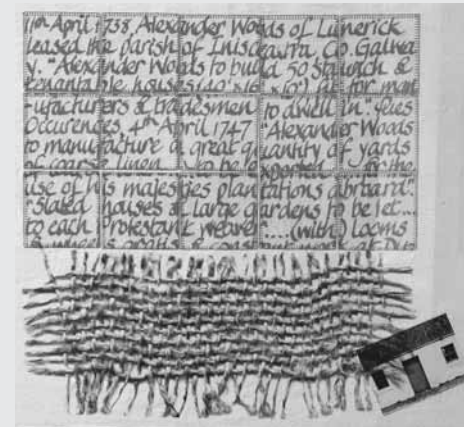 11th April 1738, Alexander Woods of Limerick
leased the parish of Iniscealtra, Co. Galwa
y. "Alexander Woods to build 50 staunch &
tenantable houses (40' x 16' x 10') fit for man
ufacturers & tradesmen to dwell in." Pues
Occurences, 4th April 1747 "Alexander Woods
to manufacture a great quantity of yards
of coarse linen to be exported for the
use of his majesties plantations abroard".
"Slated houses & large gardens to be let...
to each Protestant weaver .....(with) looms